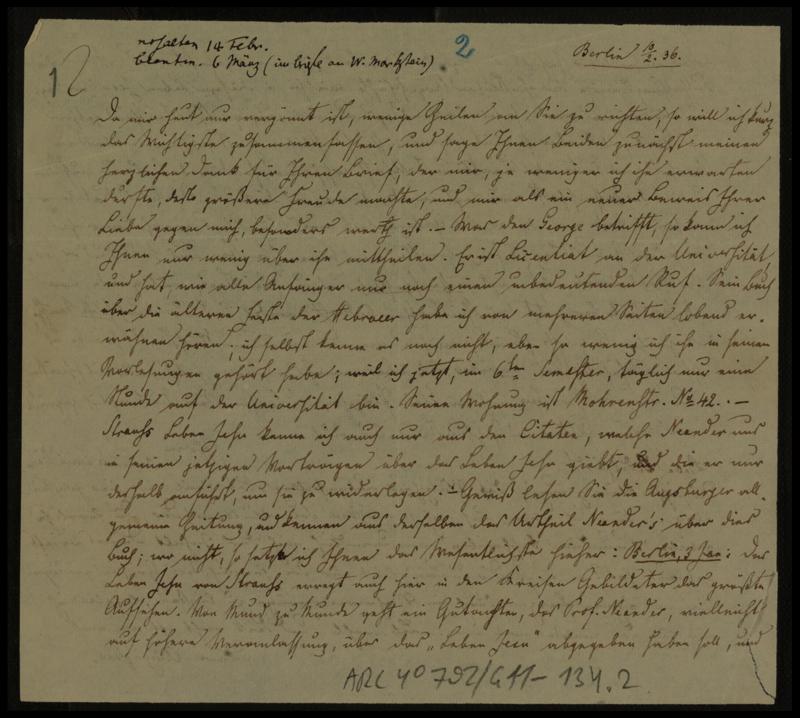 erhalten 14 Febr.
beantw. 6 März (im Briefe an W. Markstein)
2
12
Berlin 10/2. 36.
Da mir heut nur vergönnt ist, wenige Zeilen an Sie zu richten, so will ich kurz
das Wichtigste zusammenfassen, und sage Ihnen Beiden zunächst meinen
herzlichen Dank für Ihren Brief, der mir, je weniger ich ihn erwarten
durfte, desto größere Freude machte, und mir als ein neuer Beweis Ihrer
Liebe gegen mich, besonders werth ist. – Was den George betrifft, so kann ich
Ihnen nur wenig über ihn mittheilen. Er ist Licentiat an der Universität,
und hat, wie alle Anfänger nur noch einen unbedeutenden Ruf. Sein Buch
über die älteren Feste der Hebraeer habe ich von mehreren Seiten lobend er-
wähnen hören; ich selbst kenne es noch nicht, eben so wenig ich ihn in seinen
Vorlesungen gehört habe; weil ich jetzt, im 6ten Semester, täglich nur eine
Stunde auf der Universität bin. Seine Wohnung ist Mohrenstr. No 42. –
Strauß Leben Jesu kenne ich auch nur aus den Citaten, welche Neander uns
in seinen jetzigen Vorträgen über das Leben Jesu giebt, und die er nur
deshalb anführt, um sie zu widerlegen. – Gewiß lesen Sie die Augsburger all-
gemeine Zeitung, und kennen aus derselben das Urtheil Neander's über dies
Buch; wo nicht, so setze ich Ihnen das Wesentlichste hieher: Berlin, 3 Jan: Das
Leben Jesu von Strauß erregt auch hier in den Kreisen Gebildeter das größte
Aufsehen. Von Mund zu Munde geht ein Gutachten, das Prof. Neander, vielleicht
auf höhere Veranlassung, über das „Leben Jesu" abgegeben haben soll, und
ARC 4o 792/G11-134.2